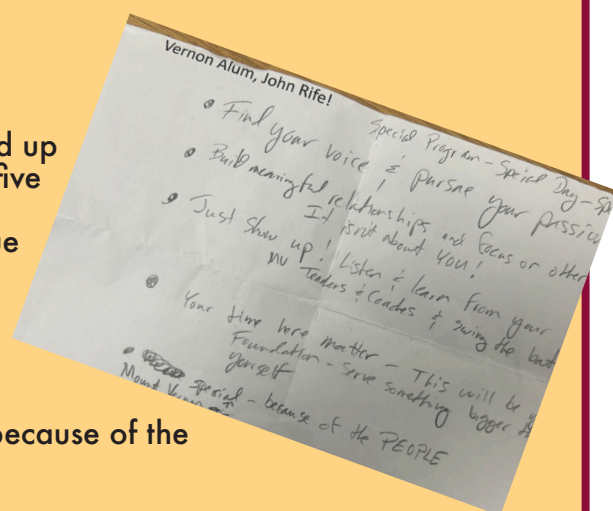 d up
five
ue
because of the
Vernon Alum, John Rife!
Special Program - Special Day - Sp
• Find your voice & pursue your passion
• Build meaningful relationships and focus on other
It isn't about YOU!
• Just show up! Listen & learn from your
MV Teachers & Coaches & swing the bat
• Your time here matter - This will be y
Foundation - Serve something bigger
yourself
• special - because of the PEOPLE
Mount Vernon